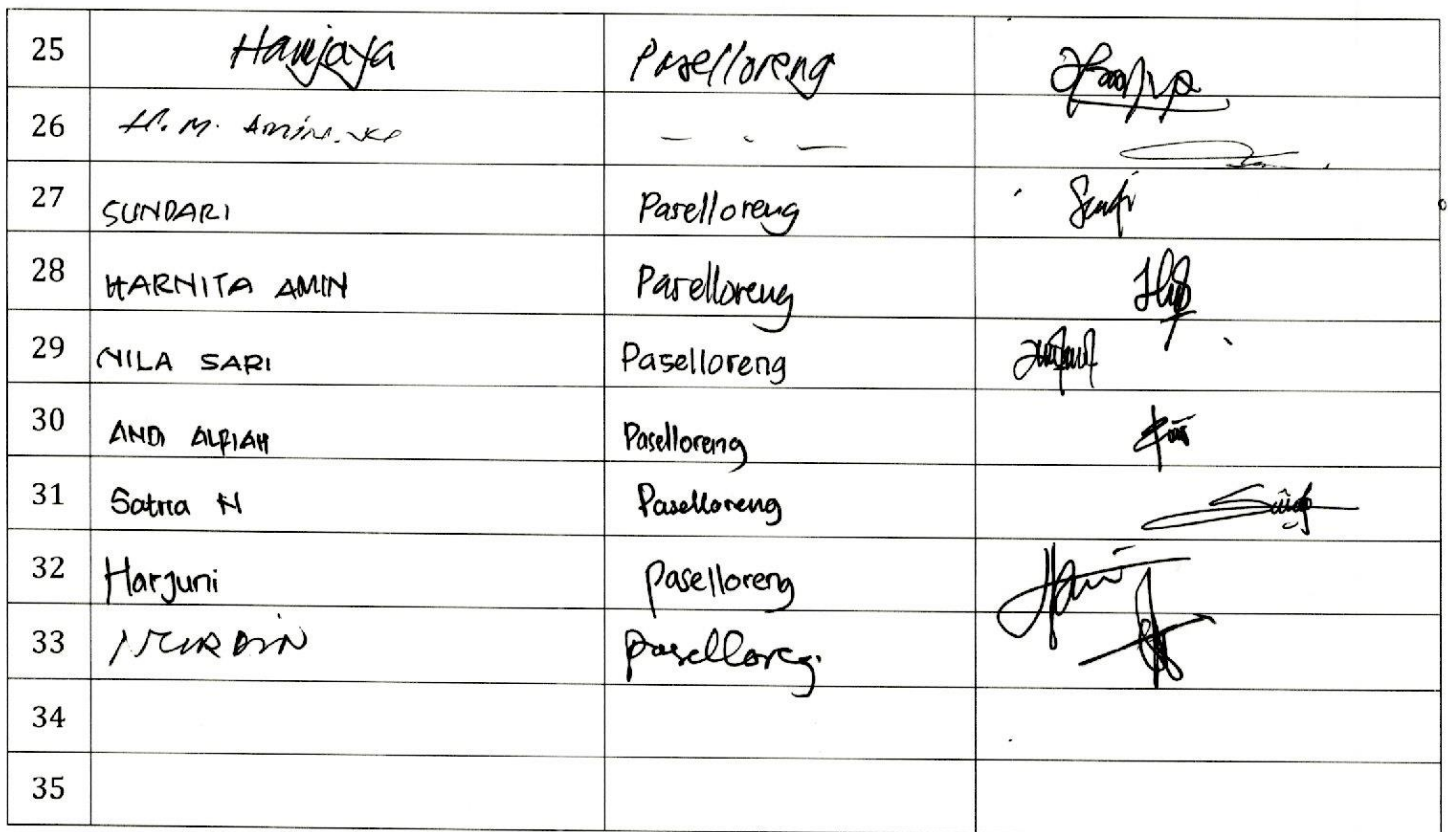 25 Hamjaya Paselloreng
26 H. M. Amin. - . -
27 SUNDARI Paselloreng
28 HARNITA AMIN Paselloreng
29 NILA SARI Paselloreng
30 ANDI ALFIAH Paselloreng
31 Satria N Paselloreng
32 Harjuni Paselloreng
33 NURDIN Paselloreg.
34
35